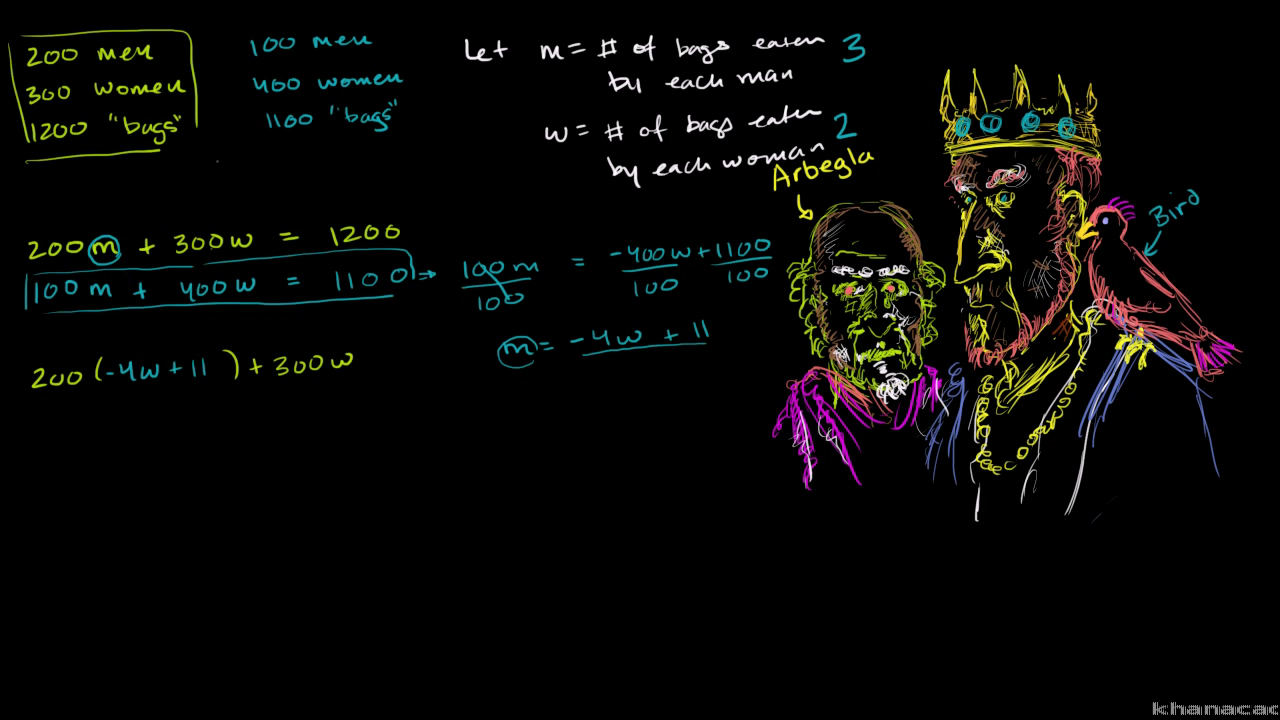 200 men
300 women
1200 "bags"
100 men
400 women
1100 "bags"
Let m = # of bags eaten 3
by each man
w = # of bags eaten 2
by each woman
Arbegla
Bird
200m + 300w = 1200
100m + 400w = 1100 → 100m/100 = -400w/100 + 1100/100
m = -4w + 11
200(-4w+11) + 300w
khanacad